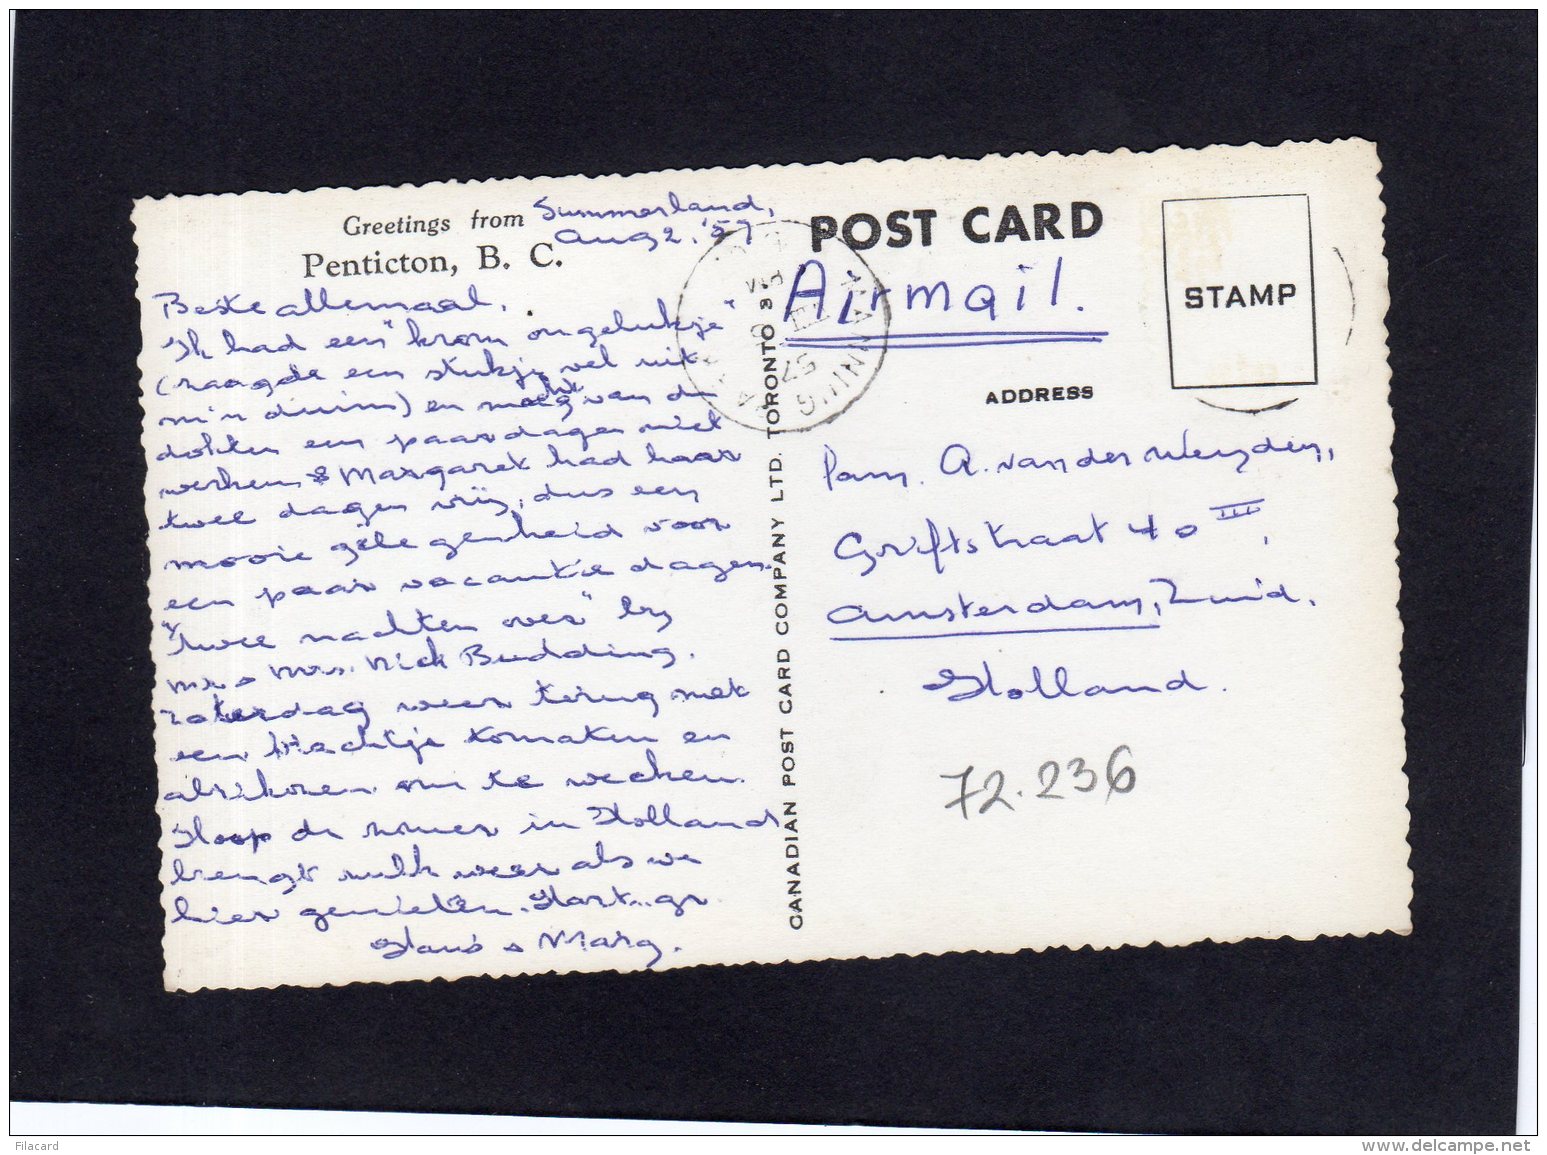 Greetings from
Penticton, B. C.
Summerland,
Aug 2. '57
Beste allemaal,
Ik had een "krom ongelukje"
(raagde een stukje vel uit
m'n duim) en mocht van de
dokter een paar dagen niet
werken & Margaret had haar
twee dagen vrij, dus een
mooie gelegenheid voor
een paar vacantie dagen.
"Twee nachten over" by
Mr & Mrs. Nick Budding.
Zaterdag weer terug met
een vrachtje tomaten en
abrikozen om te wecken.
Hoop de zomer in Holland
brengt ulk weer als we
hier genieten. Hart. gr.
& Marg.
CANADIAN POST CARD COMPANY LTD. TORONTO
POST CARD
Airmail.
STAMP
ADDRESS
Fam. A. van der Weyden,
Griftstraat 40 III,
Amsterdam, Zuid.
Holland.
72.236
Filacard
www.delcampe.net